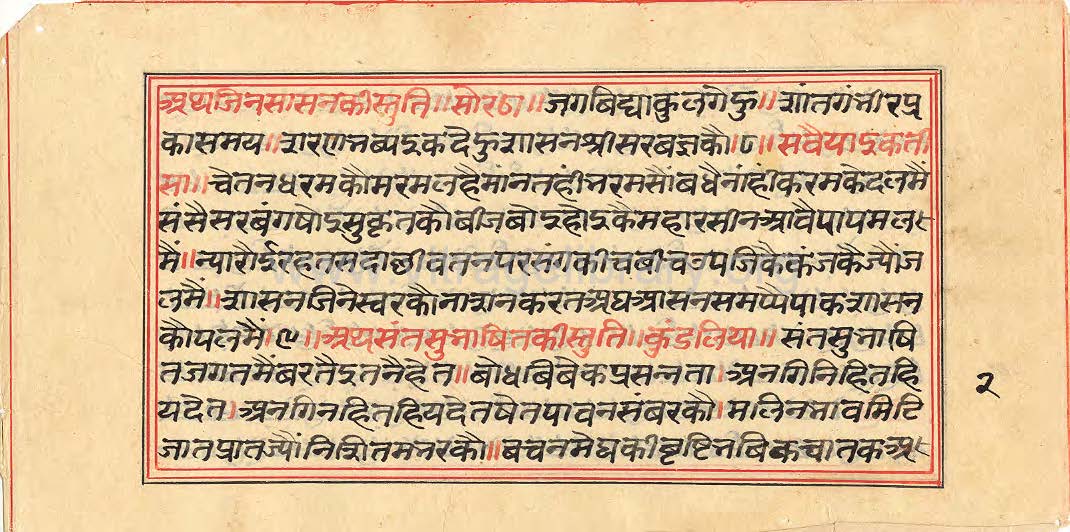 अथजिनसासनकीस्तुति॥सोरठा॥जगबिद्याकुलगेऊ॥शांतगंभीरप्र
कासमय॥शरणभब्यइकदेऊशासनश्रीसरबज्ञकौ॥८॥सवैयाइकती
सा॥चेतनधरमकौमरमलहैमांनतहींभरमसौंबधैनांहींकरमकेदलमैं
संसैसरबंगषोइसुकृतकौबीजबोइहोइकैमहारसीनआवैपापमल
मैं॥न्यारौईरहतसदाछीवतनपरसंगकीचबीचउपजिकैकंजकैज्यौंज
लमैं॥शासनजिनेस्वरकौनाशनकरतअघआसनसमप्पैपाकशासन
कौपलमैं।९॥अथसंतसुभाषितकीस्तुति॥कुंडलिया॥संतसुभाषि
तजगतमैंबरतैइतनैहेत॥बोधबिबेकप्रसन्नता।अनगिनिहितहि
यदेत।अनगिनहितहियदेतषेतपावनसंबरकौ।मलिनभावमिटि
जातप्रातज्यौंनिशितमभरकौ॥बचनमेघकीवृष्टिभबिकचातकअ
२